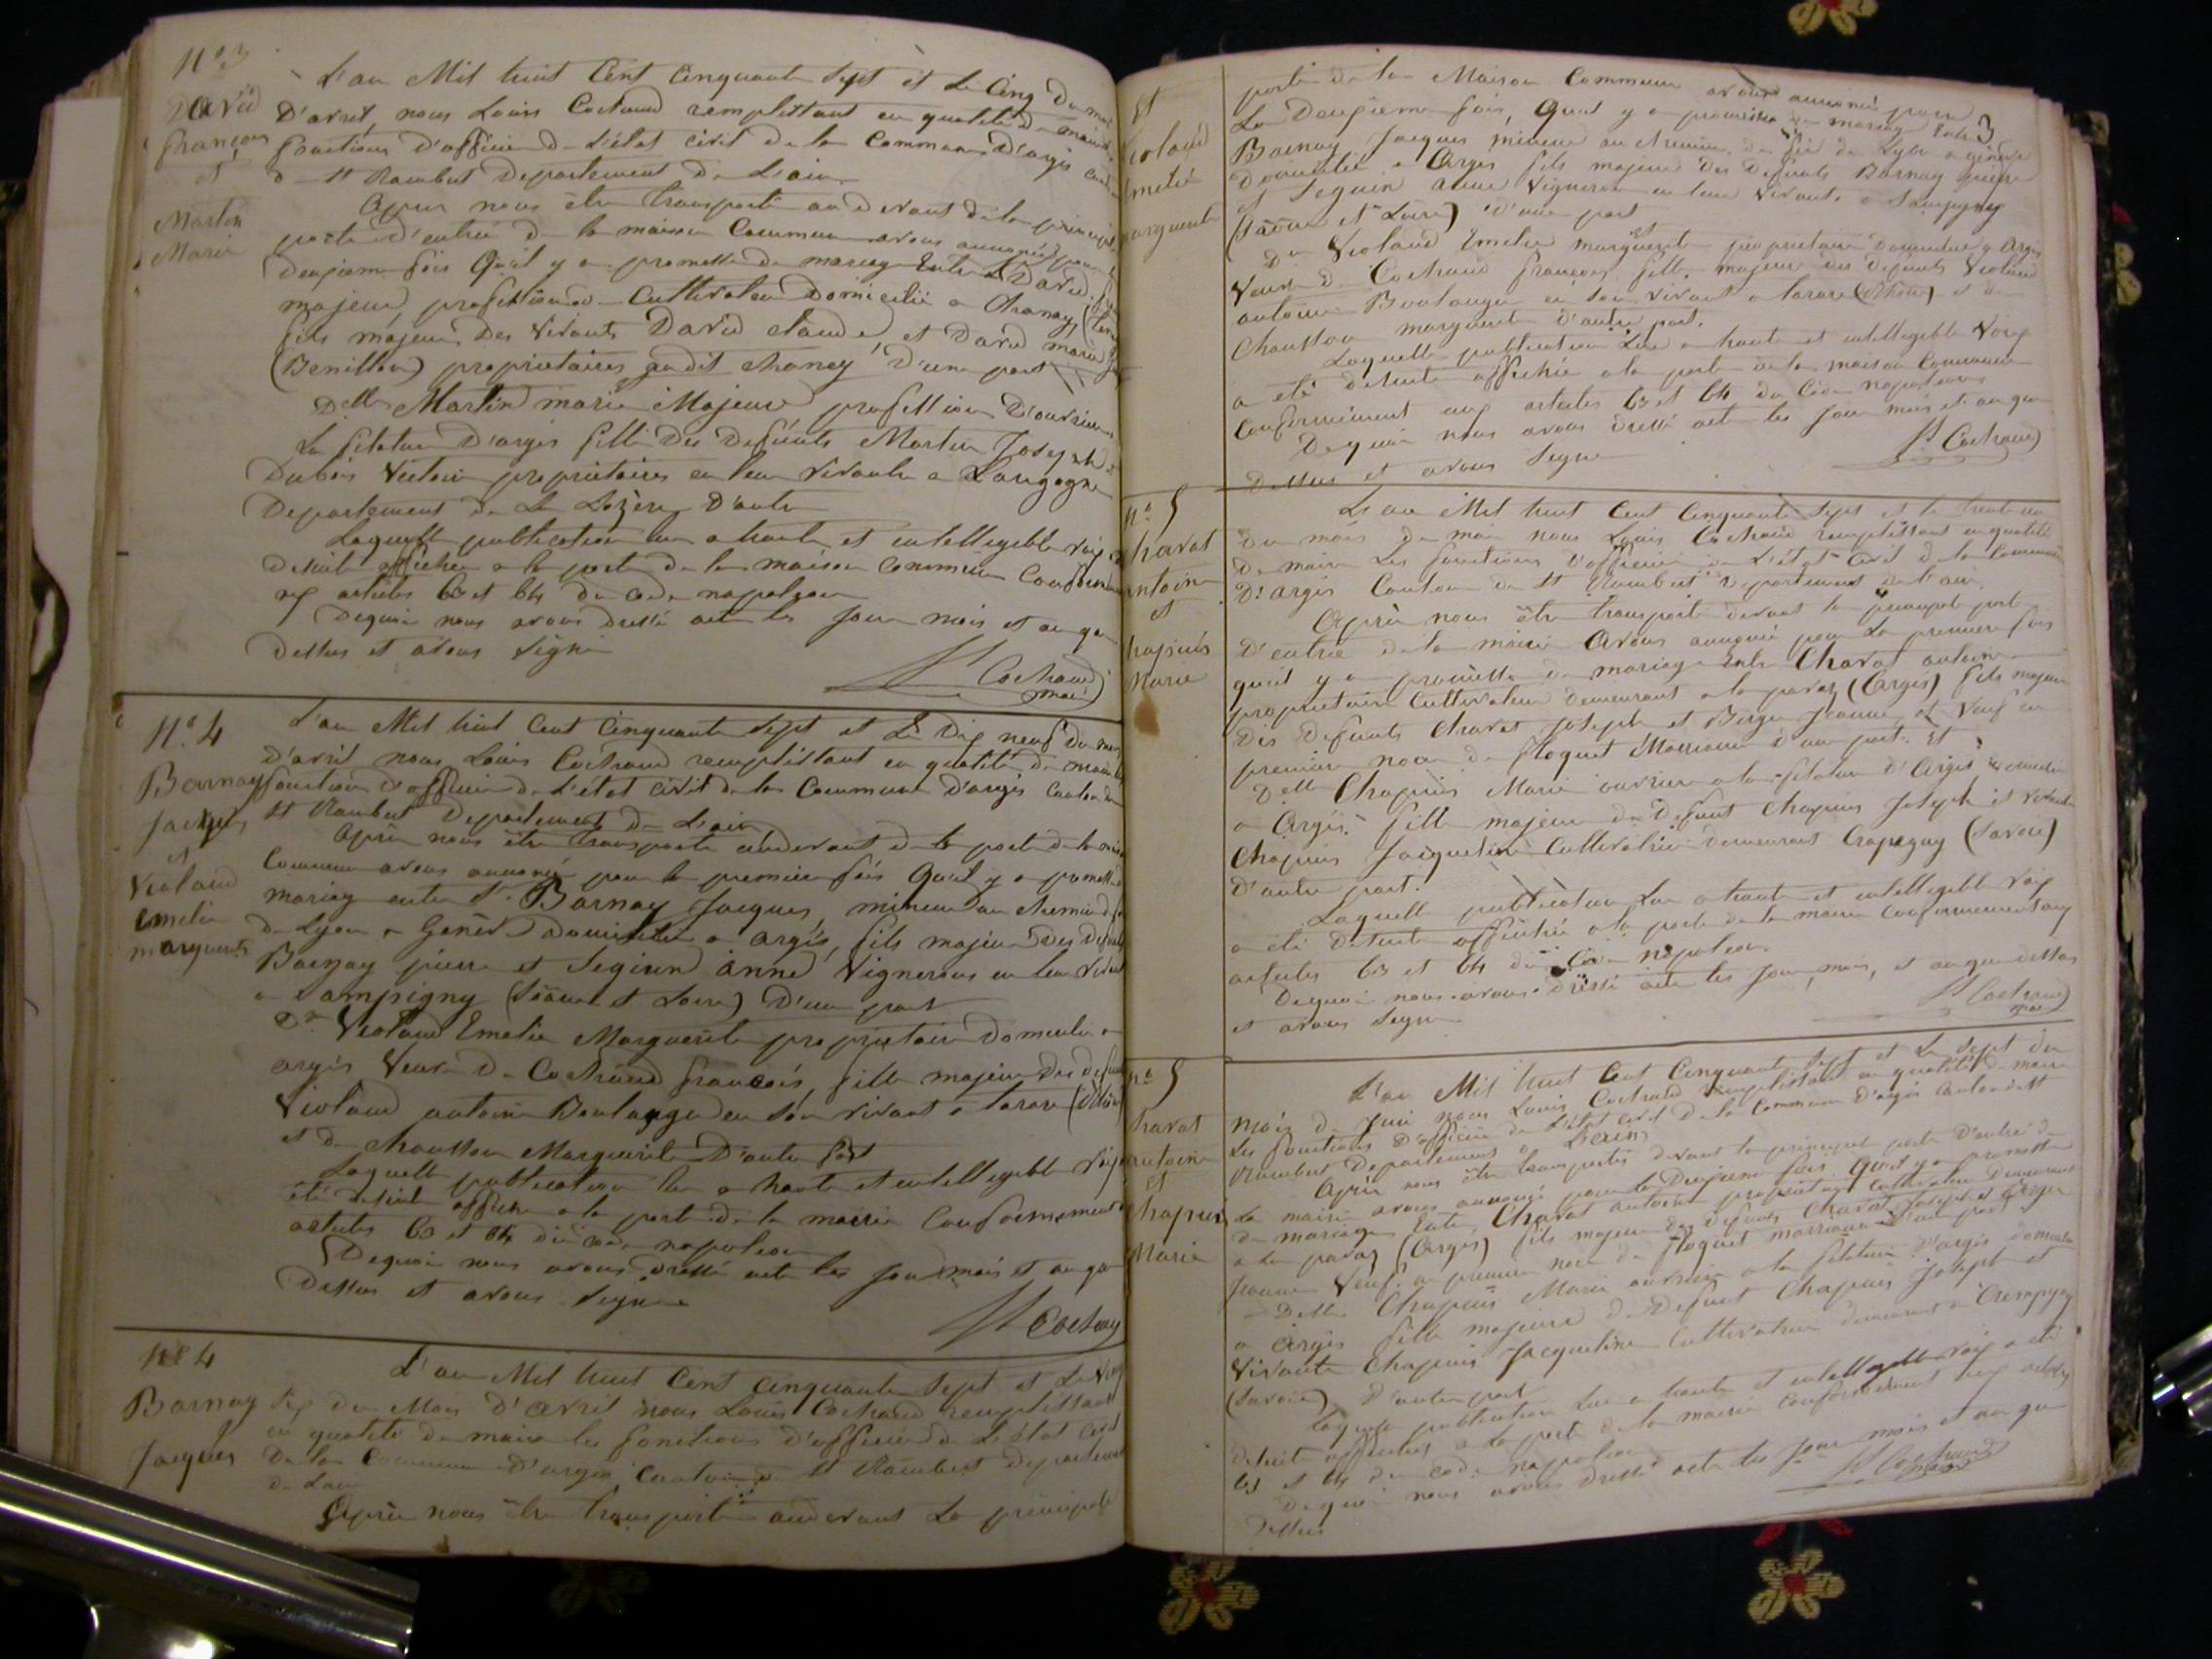 N° 3
David
françois
et
Martin
Marie
L'an Mil huit Cent Cinquante Sept et Le Cinq Du moi
D'avril, nous Louis Cochaud remplissant en qualité de maire
fonctions D'officier de L'état civil de la Commune D'argis
de St Rambert Departement De L'ain
Après nous être transporté au devant de la principale
porte d'entrée De la maison Commune avons annoncé pour
Deuxieme fois Qu'il y a promesse de mariage Entre David
majeur, profession de Cultivateur Domicilié a Chanay,
fils majeur Des vivants David claude, et David marie
(Benillon) proprietaires audit chaney D'une part
Delle Martin marie Majeure profession D'ouvriere
La filature D'argis fille Des Defunts Martin Joseph
Dubois Victoire proprietaires en leur vivant a Langogne
Departement De La Lozère D'autre
Laquelle publication lue a haute et intelligible voix
De suite affichée a la porte de la maison Commune
aux articles 63 et 64 du code napoleon
Dequoi nous avons dressé acte les Jour mois et an que
Dessus et avons signé
Ls Cochaud
maire
N° 4
Barnay
Jacques
et
Violaud
Emelie
marguerite
L'an Mil huit Cent Cinquante Sept et Le Dix neuf Du mois
D'avril nous Louis Cochaud remplissant en qualité de maire
fonction d'officier de L'état civil de la Commune D'argis Canton de
St Rambert Departement De L'ain
Après nous être transporté audevant de la porte de la
Commune avons annoncé pour la premiere fois Qu'il y a promesse
mariage entre Sr Barnay Jacques, mineur au chemin de
de Lyon a Genève Domicilié a argis, fils majeur Des
Barnay pierre et Seguin anne Vignerons en leur
a Sampigny (Saone et Loire) D'une part
De Violaud Emelie Marguerite proprietaire Domicilié a
argis Veuve De Cochaud francois, fille majeur des
Violaud antoine Boulanger en son vivant a tarare
et de chausson Marguerite D'autre part
Laquelle publication lue a haute et intelligible voix
été de suite affiché a la porte de la mairie Conformement
articles 63 et 64 du code napoleon
Dequoi nous avons dressé acte les Jour mois et an que
Dessus et avons Signé
Ls Cochaud
N° 4
Barnay
Jacques
L'an Mil huit Cent Cinquante Sept et Le
Six du Mois D'avril nous Louis Cochaud remplissant
en qualité de maire les fonctions d'officier de L'état civil
De la Commune D'argis Canton de St Rambert Departement
de L'ain
Après nous être transporté audevant La principale
Et
Violaud
Emelie
marguerite
3
porte de la Maison Commune avons annoncé pour
La Deuxieme fois, Qu'il y a promesse de mariage Entre
Barnay Jacques mineur au chemin de fer de Lyon a genève
Domicilié a Argis fils majeur Des Defunts Barnay pierre
et Seguin anne Vigneron en leur vivant, a Sampigny
(Saone et Loire) D'une part
Et
De Violaud Emelie marguerite proprietaire Domicilié a Argis
Veuve de Cochaud francois fille, majeure des Defunts Violaud
antoine Boulanger en son vivant a tarare (Rhone) et de
Chausson marguerite D'autre part.
Laquelle publication Lue a haute et intelligible Voix
a été de suite affichée a la porte de la maison Commune
Conformément aux articles 63 et 64 du Code napoleon
Dequoi nous avons dressé acte les Jour mois et an que
Dessus et avons Signé
Ls Cochaud
N° 5
Charat
antoine
et
Chapuis
Marie
L'an Mil huit Cent Cinquante Sept et le trente un
Du mois de mai nous Louis Cochaud remplissant en qualité
De maire Les fonctions D'officier de L'état Civil de la Commune
D'argis Canton de St Rambert Departement de L'ain
Après nous être transporté devant la principale porte
D'entrée de la mairie avons annoncé pour La premiere fois
qu'il y a promesse de mariage Entre Charat antoine
proprietaire Cultivateur Demeurant a la paraz (Argis) fils majeur
Des Defunts Charat Joseph et Berger Jeanne, et Veuf en
premiere noce de floquet Marianne d'une part. Et
Delle Chapuis Marie ouvriere a la filature d'Argis
a Argis. fille majeure de Defunt Chapuis Joseph et vivante
Chapuis Jacqueline Cultivatrice Demeurant (Savoie)
D'autre part.
Laquelle publication Lue a haute et intelligible voix
a été de suite affichée a la porte de la mairie Conformement aux
articles 63 et 64 du Code napoleon
Dequoi nous avons dressé acte les Jour, mois, et an que dessus
et avons Signé
Ls Cochaud
N° 5
Charat
antoine
et
Chapuis
Marie
L'an Mil huit Cent Cinquante Sept et Le Sept du
Mois de Juin nous Louis Cochaud remplissant en qualité de maire
Les fonctions D'officier de L'état civil de la Commune D'argis Canton de St
Rambert Departement de L'ain
Après nous être transporté devant la principale porte D'entrée de
La mairie avons annoncé pour la Deuxieme fois Qu'il y a promesse
de mariage Entre Charat antoine proprietaire Cultivateur Demeurant
a La paraz (Argis) fils majeur Des Defunts Charat Joseph et Berger
Jeanne Veuf en premiere noce de floquet marianne d'une part
Delle Chapuis Marie ouvriere a la filature D'argis
a Argis fille majeure de Defunt Chapuis Joseph et
Vivante Chapuis Jacqueline Cultivatrice demeurant a
(Savoie) D'autre part
Laquelle publication Lue a haute et intelligible voix a été
De suite affichée, a La porte de la mairie Conformement aux articles
63 et 64 du code napoleon
Dequoi nous avons Dressé acte les Jour mois et an que
Dessus
Ls Cochaud
maire